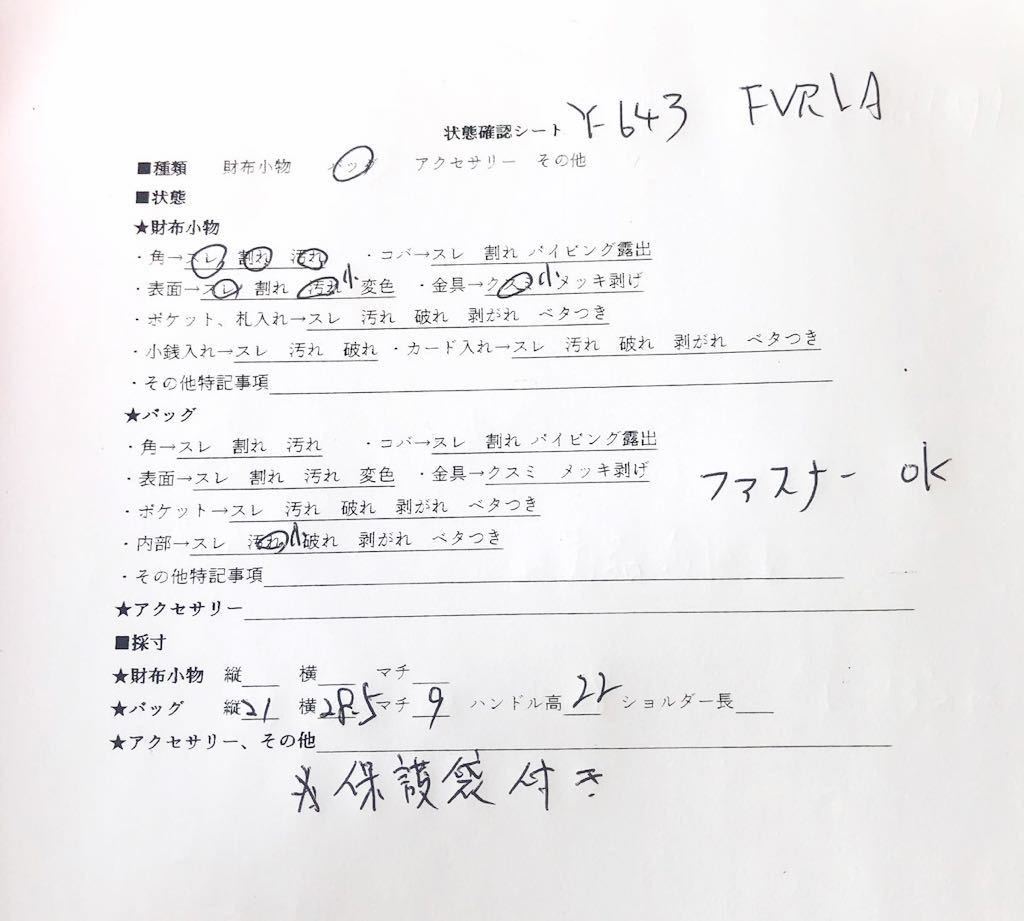 状態確認シート Y-643 FURLA
■種類 財布小物 バッグ アクセサリー その他
■状態
★財布小物
・角→スレ 割れ 汚れ ・コバ→スレ 割れ パイピング露出
・表面→スレ 割れ 汚れ小 変色 ・金具→クスミ小 メッキ剥げ
・ポケット、札入れ→スレ 汚れ 破れ 剥がれ ベタつき
・小銭入れ→スレ 汚れ 破れ ・カード入れ→スレ 汚れ 破れ 剥がれ ベタつき
・その他特記事項
★バッグ
・角→スレ 割れ 汚れ ・コバ→スレ 割れ パイピング露出
・表面→スレ 割れ 汚れ 変色 ・金具→クスミ メッキ剥げ ファスナー OK
・ポケット→スレ 汚れ 破れ 剥がれ ベタつき
・内部→スレ 汚れ小 破れ 剥がれ ベタつき
・その他特記事項
★アクセサリー
■採寸
★財布小物 縦 横 マチ
★バッグ 縦21 横28.5 マチ9 ハンドル高22 ショルダー長
★アクセサリー、その他
※保護袋付き